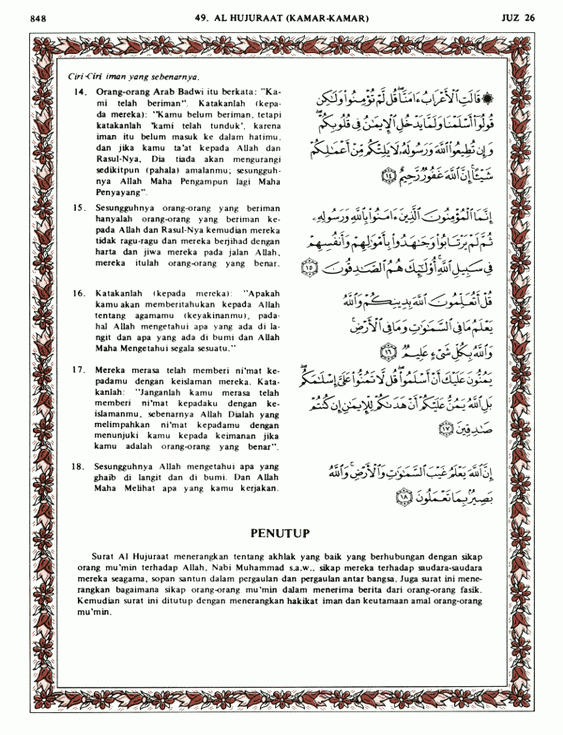 848
49. AL HUJURAAT (KAMAR-KAMAR)
JUZ 26
Ciri-Ciri iman yang sebenarnya.
14. Orang-orang Arab Badwi itu berkata: "Ka-
mi telah beriman". Katakanlah (kepa-
da mereka): "Kamu belum beriman, tetapi
katakanlah "kami telah tunduk', karena
iman itu belum masuk ke dalam hatimu,
dan jika kamu ta'at kepada Allah dan
Rasul-Nya, Dia tiada akan mengurangi
sedikitpun (pahala) amalanmu; sesungguh-
nya Allah Maha Pengampun lagi Maha
Penyayang".
15. Sesungguhnya orang-orang yang beriman
hanyalah orang-orang yang beriman ke-
pada Allah dan Rasul-Nya kemudian mereka
tidak ragu-ragu dan mereka berjihad dengan
harta dan jiwa mereka pada jalan Allah,
mereka itulah orang-orang yang benar.
16. Katakanlah (kepada mereka): "Apakah
kamu akan memberitahukan kepada Allah
tentang agamamu (keyakinanmu), pada-
hal Allah mengetahui apa yang ada di la-
ngit dan apa yang ada di bumi dan Allah
Maha Mengetahui segala sesuatu."
17. Mereka merasa telah memberi ni'mat ke-
padamu dengan keislaman mereka. Kata-
kanlah: "Janganlah kamu merasa telah
memberi ni'mat kepadaku dengan ke-
islamanmu, sebenarnya Allah Dialah yang
melimpahkan ni'mat kepadamu dengan
menunjuki kamu kepada keimanan jika
kamu adalah orang-orang yang benar".
18. Sesungguhnya Allah mengetahui apa yang
ghaib di langit dan di bumi. Dan Allah
Maha Melihat apa yang kamu kerjakan.
۞ قَالَتِ ٱلْأَعْرَابُ ءَامَنَّا ۖ قُل لَّمْ تُؤْمِنُوا۟ وَلَٰكِن
قُولُوٓا۟ أَسْلَمْنَا وَلَمَّا يَدْخُلِ ٱلْإِيمَٰنُ فِى قُلُوبِكُمْ ۖ
وَإِن تُطِيعُوا۟ ٱللَّهَ وَرَسُولَهُۥ لَا يَلِتْكُم مِّنْ أَعْمَٰلِكُمْ
شَيْـًٔا ۚ إِنَّ ٱللَّهَ غَفُورٌ رَّحِيمٌ ١٤
إِنَّمَا ٱلْمُؤْمِنُونَ ٱلَّذِينَ ءَامَنُوا۟ بِٱللَّهِ وَرَسُولِهِۦ
ثُمَّ لَمْ يَرْتَابُوا۟ وَجَٰهَدُوا۟ بِأَمْوَٰلِهِمْ وَأَنفُسِهِمْ
فِى سَبِيلِ ٱللَّهِ ۚ أُو۟لَٰٓئِكَ هُمُ ٱلصَّٰدِقُونَ ١٥
قُلْ أَتُعَلِّمُونَ ٱللَّهَ بِدِينِكُمْ وَٱللَّهُ
يَعْلَمُ مَا فِى ٱلسَّمَٰوَٰتِ وَمَا فِى ٱلْأَرْضِ ۚ
وَٱللَّهُ بِكُلِّ شَىْءٍ عَلِيمٌ ١٦
يَمُنُّونَ عَلَيْكَ أَنْ أَسْلَمُوا۟ ۖ قُل لَّا تَمُنُّوا۟ عَلَىَّ إِسْلَٰمَكُم ۖ
بَلِ ٱللَّهُ يَمُنُّ عَلَيْكُمْ أَنْ هَدَىٰكُمْ لِلْإِيمَٰنِ إِن كُنتُمْ
صَٰدِقِينَ ١٧
إِنَّ ٱللَّهَ يَعْلَمُ غَيْبَ ٱلسَّمَٰوَٰتِ وَٱلْأَرْضِ ۚ وَٱللَّهُ
بَصِيرٌۢ بِمَا تَعْمَلُونَ ١٨
PENUTUP
Surat Al Hujuraat menerangkan tentang akhlak yang baik yang berhubungan dengan sikap
orang mu'min terhadap Allah, Nabi Muhammad s.a.w., sikap mereka terhadap saudara-saudara
mereka seagama, sopan santun dalam pergaulan dan pergaulan antar bangsa. Juga surat ini mene-
rangkan bagaimana sikap orang-orang mu'min dalam menerima berita dari orang-orang fasik.
Kemudian surat ini ditutup dengan menerangkan hakikat iman dan keutamaan amal orang-orang
mu'min.